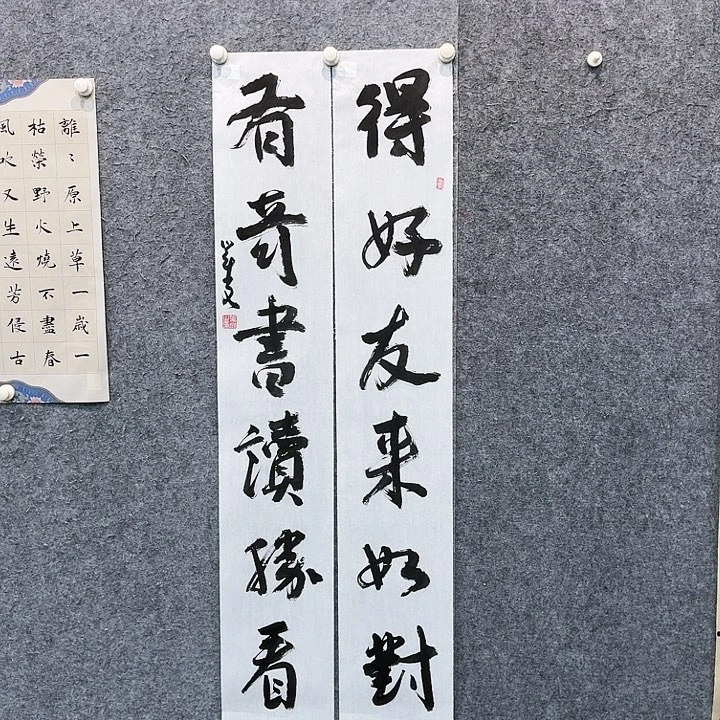 得好友来如對
有奇書讀勝看
離〻原上草一歲一
枯榮野火燒不盡春
風吹又生遠芳侵古